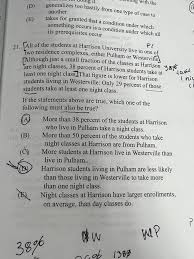 (D) generalizes too hastily from one type of case to
another
(E) takes for granted that a condition under which
something occurs is a condition under which all
is prerequisites occur
21. All of the students at Harrison University live in one of
two residence complexes, either Pulham or Westerville.
Although just a small fraction of the classes at Harrison
are night classes, 38 percent of Harrison students take at
least one night class. That figure is lower for Harrison
students living in Westerville: Only 29 percent of those
students take at least one night class.
If the statements above are true, which one of the
following must also be true?
(A) More than 38 percent of the students at Harrison
who live in Pulham take a night class.
(B) More than 50 percent of the students who take
night classes at Harrison live in Pulham.
(C) More students at Harrison live in Westerville than
live in Pulham.
(D) Harrison students living in Pulham are less likely
than those living in Westerville to take more
than one night class.
(E) Night classes at Harrison have larger enrollments,
on average, than day classes do.
38%